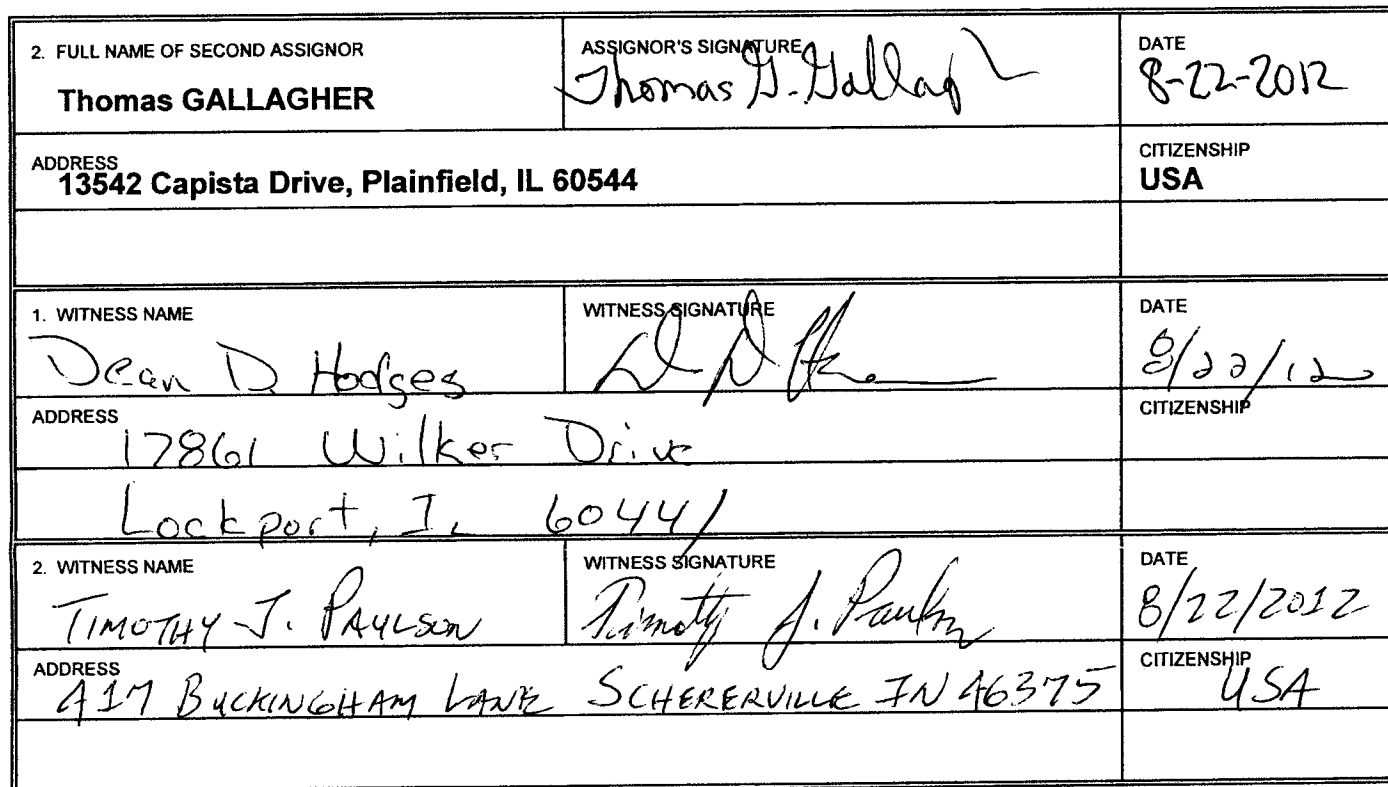 2. FULL NAME OF SECOND ASSIGNOR
Thomas GALLAGHER
ASSIGNOR'S SIGNATURE
Thomas G. Gallagh
DATE
8-22-2012
ADDRESS
13542 Capista Drive, Plainfield, IL 60544
CITIZENSHIP
USA
1. WITNESS NAME
Dean D. Hodges
WITNESS SIGNATURE
DATE
8/22/12
ADDRESS
17861 Wilker Drive
Lockport, IL 60441
CITIZENSHIP
2. WITNESS NAME
TIMOTHY J. PAULSON
WITNESS SIGNATURE
Timothy J. Paulson
DATE
8/22/2012
ADDRESS
417 BUCKINGHAM LANE SCHERERVILLE IN 46375
CITIZENSHIP
USA